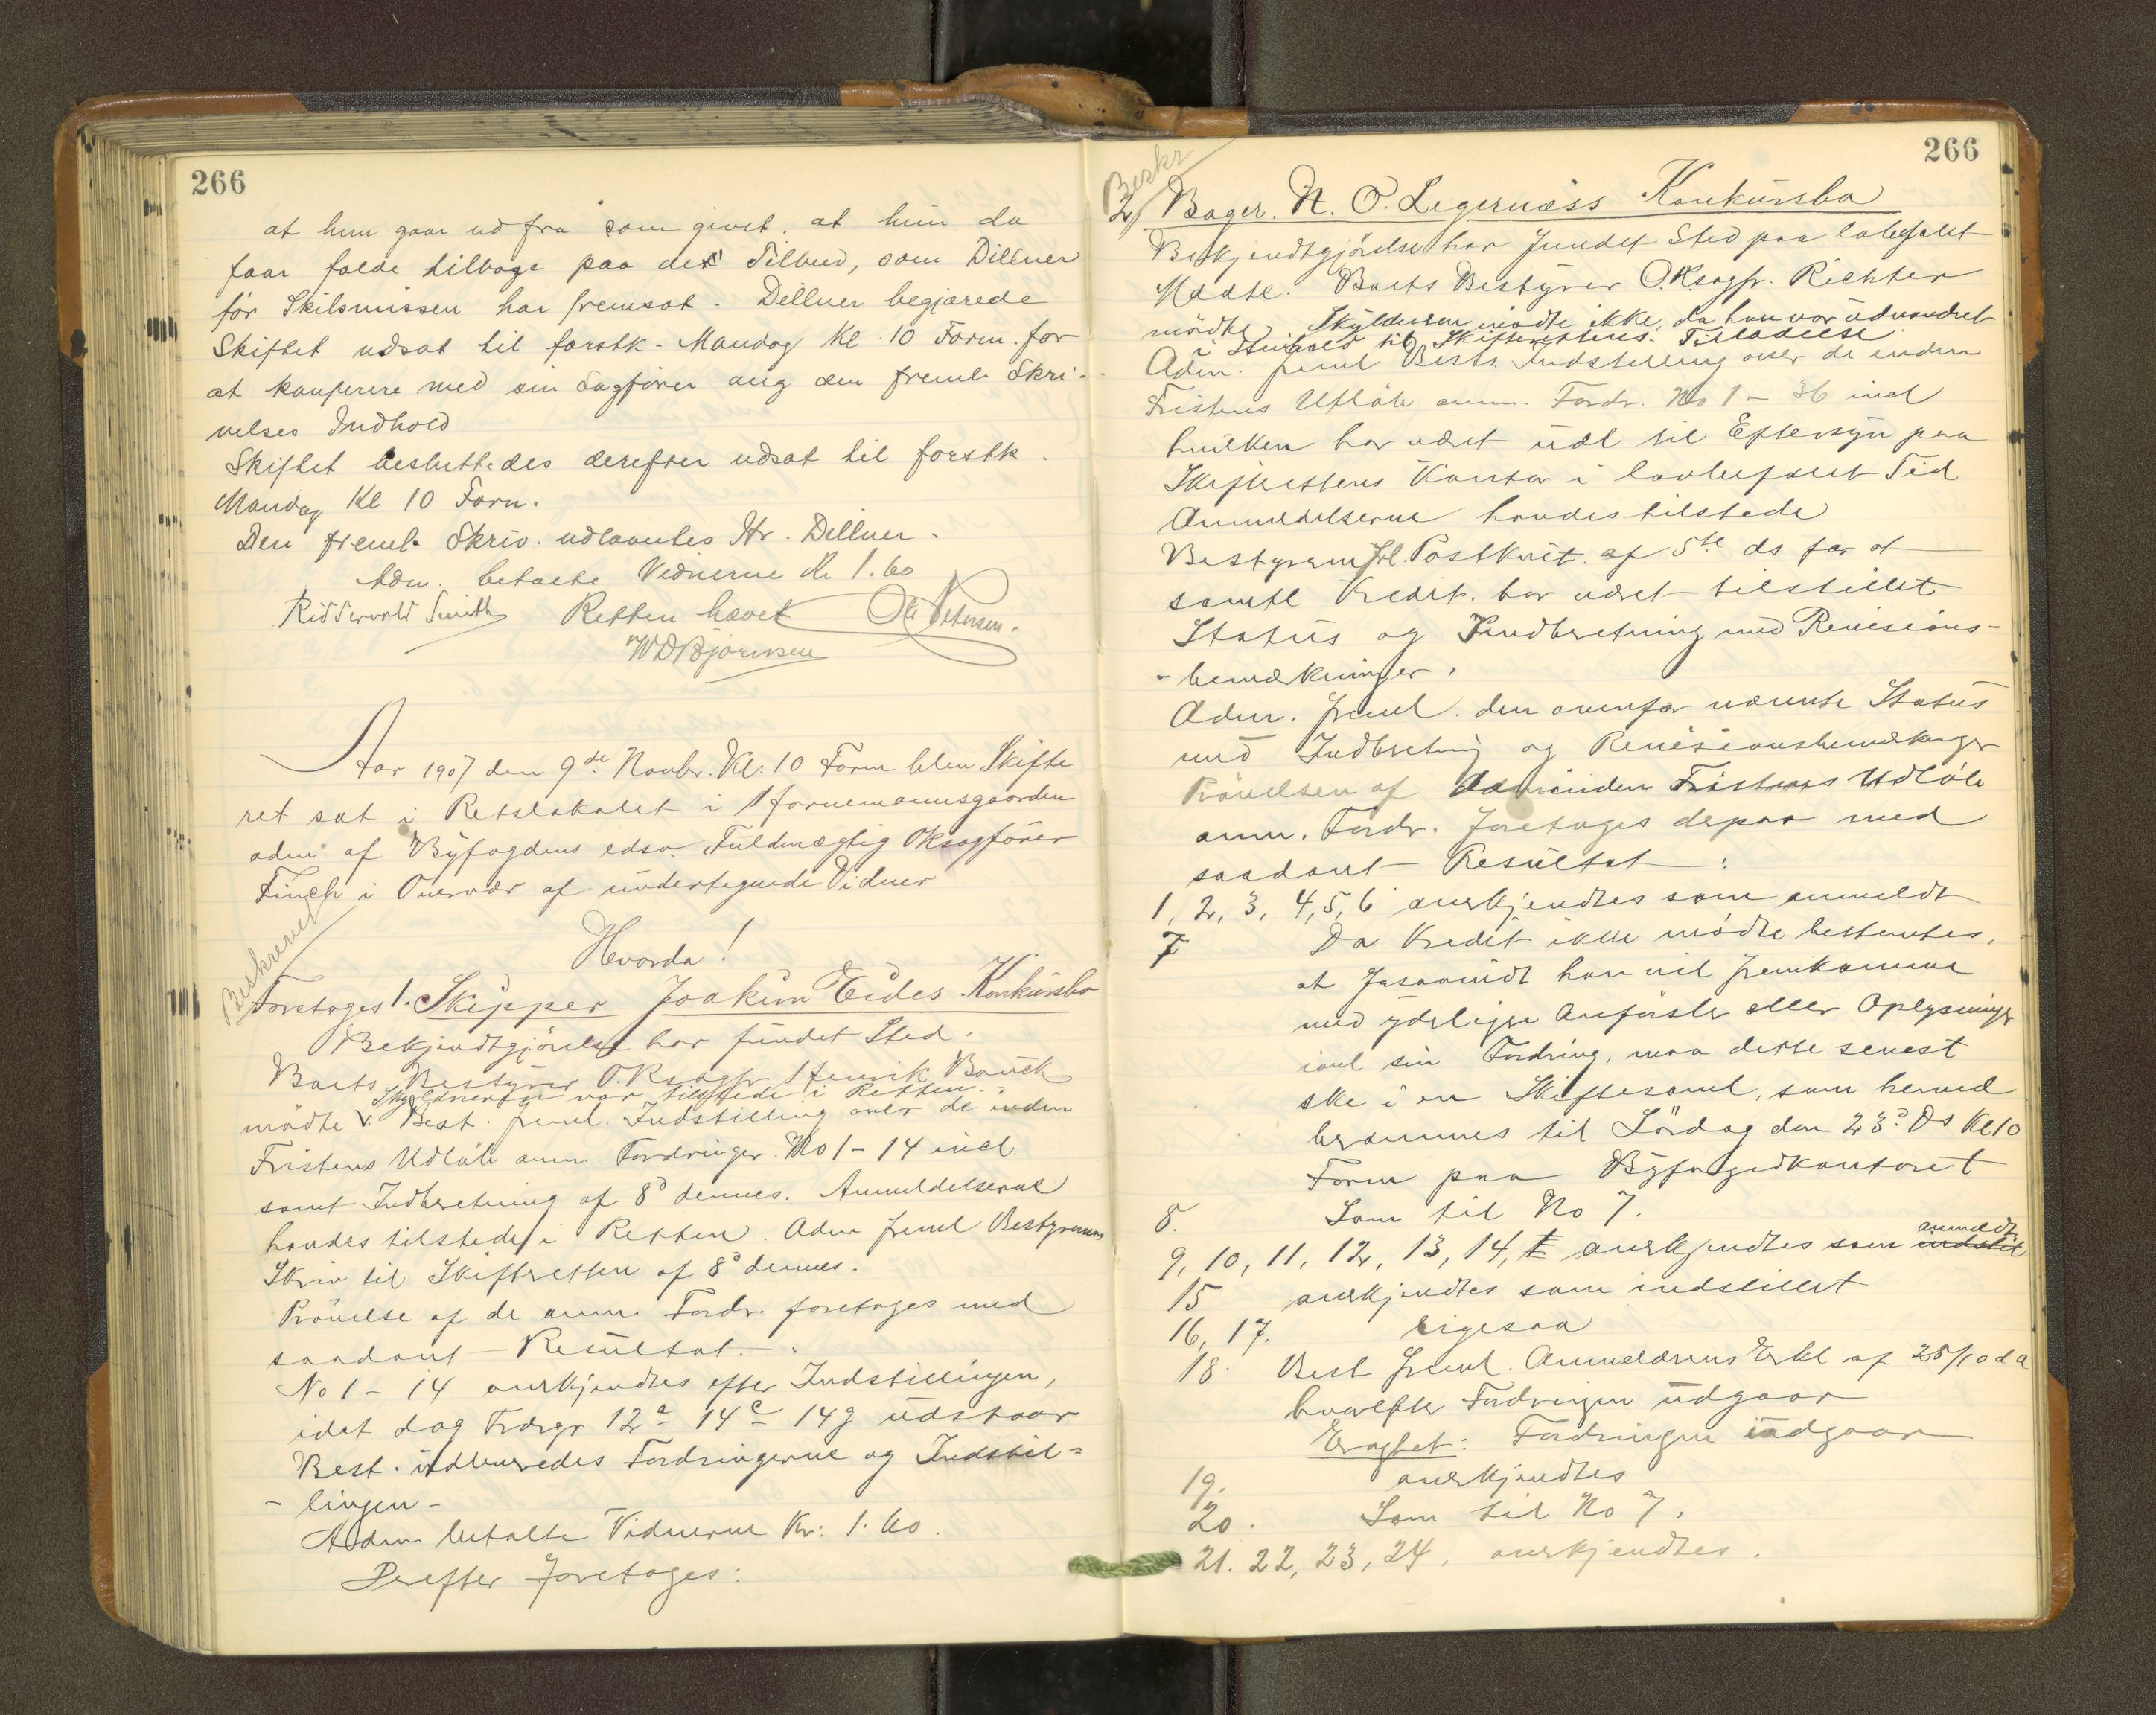 266
at hun gaar ud fra som givet, at hun da
faar falde tilbage paa det Tilbud, som Dillner
før Skilsmissen har fremsat. Dillner begjærede
Skiftet udsat til førstk. Mandag Kl. 10 Form. for
at konferere med sin Sagfører ang den freml. Skri-
velses Indhold
Skiftet besluttedes derefter udsat til førstk.
Mandag Kl 10 Form.
Den freml. Skriv. udlaantes Hr. Dillner.
Adm. betalte Vidnerne Kr 1.60
Ridderwold Smith Retten hævet Ole Petersen.
W D Bjørnsen
Aar 1907 den 9de Novbr. Kl. 10 Form blev Skifte
ret sat i Retslokalet i Hornemannsgaarden
adm af Byfogdens edsv. Fuldmægtig Oksagfører
Finch i Overvær af undertegnede Vidner
Hvorda!
Beskrevet
Foretoges 1. Skipper Joakim Eides Konkursbo
Bekjendtgjørelse har fundet Sted.
Boets Bestyrer O.R.sagfr Henrik Bauck
Skyldneren var tilstede i Retten.
mødte v. Best. freml. Indstilling over de inden
Fristens Udløb anm Fordringer. No 1 - 14 incl.
samt Indberetning af 8d dennes. Anmeldelserne
havdes tilstede i Retten. Adm freml Bestyrerens
Skriv til Skifteretten af 8d dennes.
Prøvelse af de anm. Fordr. foretoges med
saadant Resultat.
No 1 - 14 anerkjendtes efter Indstillingen,
idet dog Fordgr 12a 14c - 14g udstaar
Best. udleveredes Fordringerne og Indstil-
- lingen -
Adm betalte Vidnerne Kr: 1.60.
Derefter foretoges:
266
Beskr
2) Bager. N. O. Legernæss Konkursbo
Bekjendtgjørelse har fundet Sted paa lovbefalet
Maate. Boets Bestyrer O.R.sagfr. Richter
mødte. Skyldneren mødte ikke, da han var udvandret
i Henhold til Skifterettens Tilladelse
Adm. freml Bests. Indstilling over de inden
Fristens Udløb anm. Fordr. No 1 - 36 incl
hvilken har været udl til Eftersyn paa
Skifterettens Kontor i lovbefalet Tid
Anmeldelserne havdes tilstede
Bestyreren frl. Postkvit. af 5te ds for at
samtl Kredit. har været tilstillet
Status og Indberetning med Revisions-
- bemærkninger.
Adm. freml. den ovenfor nævnte Status
med Indberetning og Revisionsbemærkninger
Prøvelsen af de inden Fristens Udløb
anm. Fordr. foretoges depaa med
saadant Resultat:
1, 2, 3, 4, 5, 6 anerkjendtes som anmeldt
7 Da Kredit ikke mødte bestemtes,
at forsaavidt han vil fremkomme
med yderligere Anførsler eller Oplysninger
ianl sin Fordring, maa dette senest
ske i en Skiftesaml, som herved
berammes til Lørdag den 23d Ds Kl 10
Form paa Byfogedkontoret
8. Som til No 7.
anmeldt
9, 10, 11, 12, 13, 14, anerkjendtes som indstil
15 anerkjendtes som indstillet
16, 17. Ligesaa
18. Best freml. Anmelderens Erkl af 25/10 d a
hvorefter Fordringen udgaar
Eragtet: Fordringen udgaar
19. anerkjendtes
20. Som til No 7.
21. 22, 23, 24, anerkjendtes.